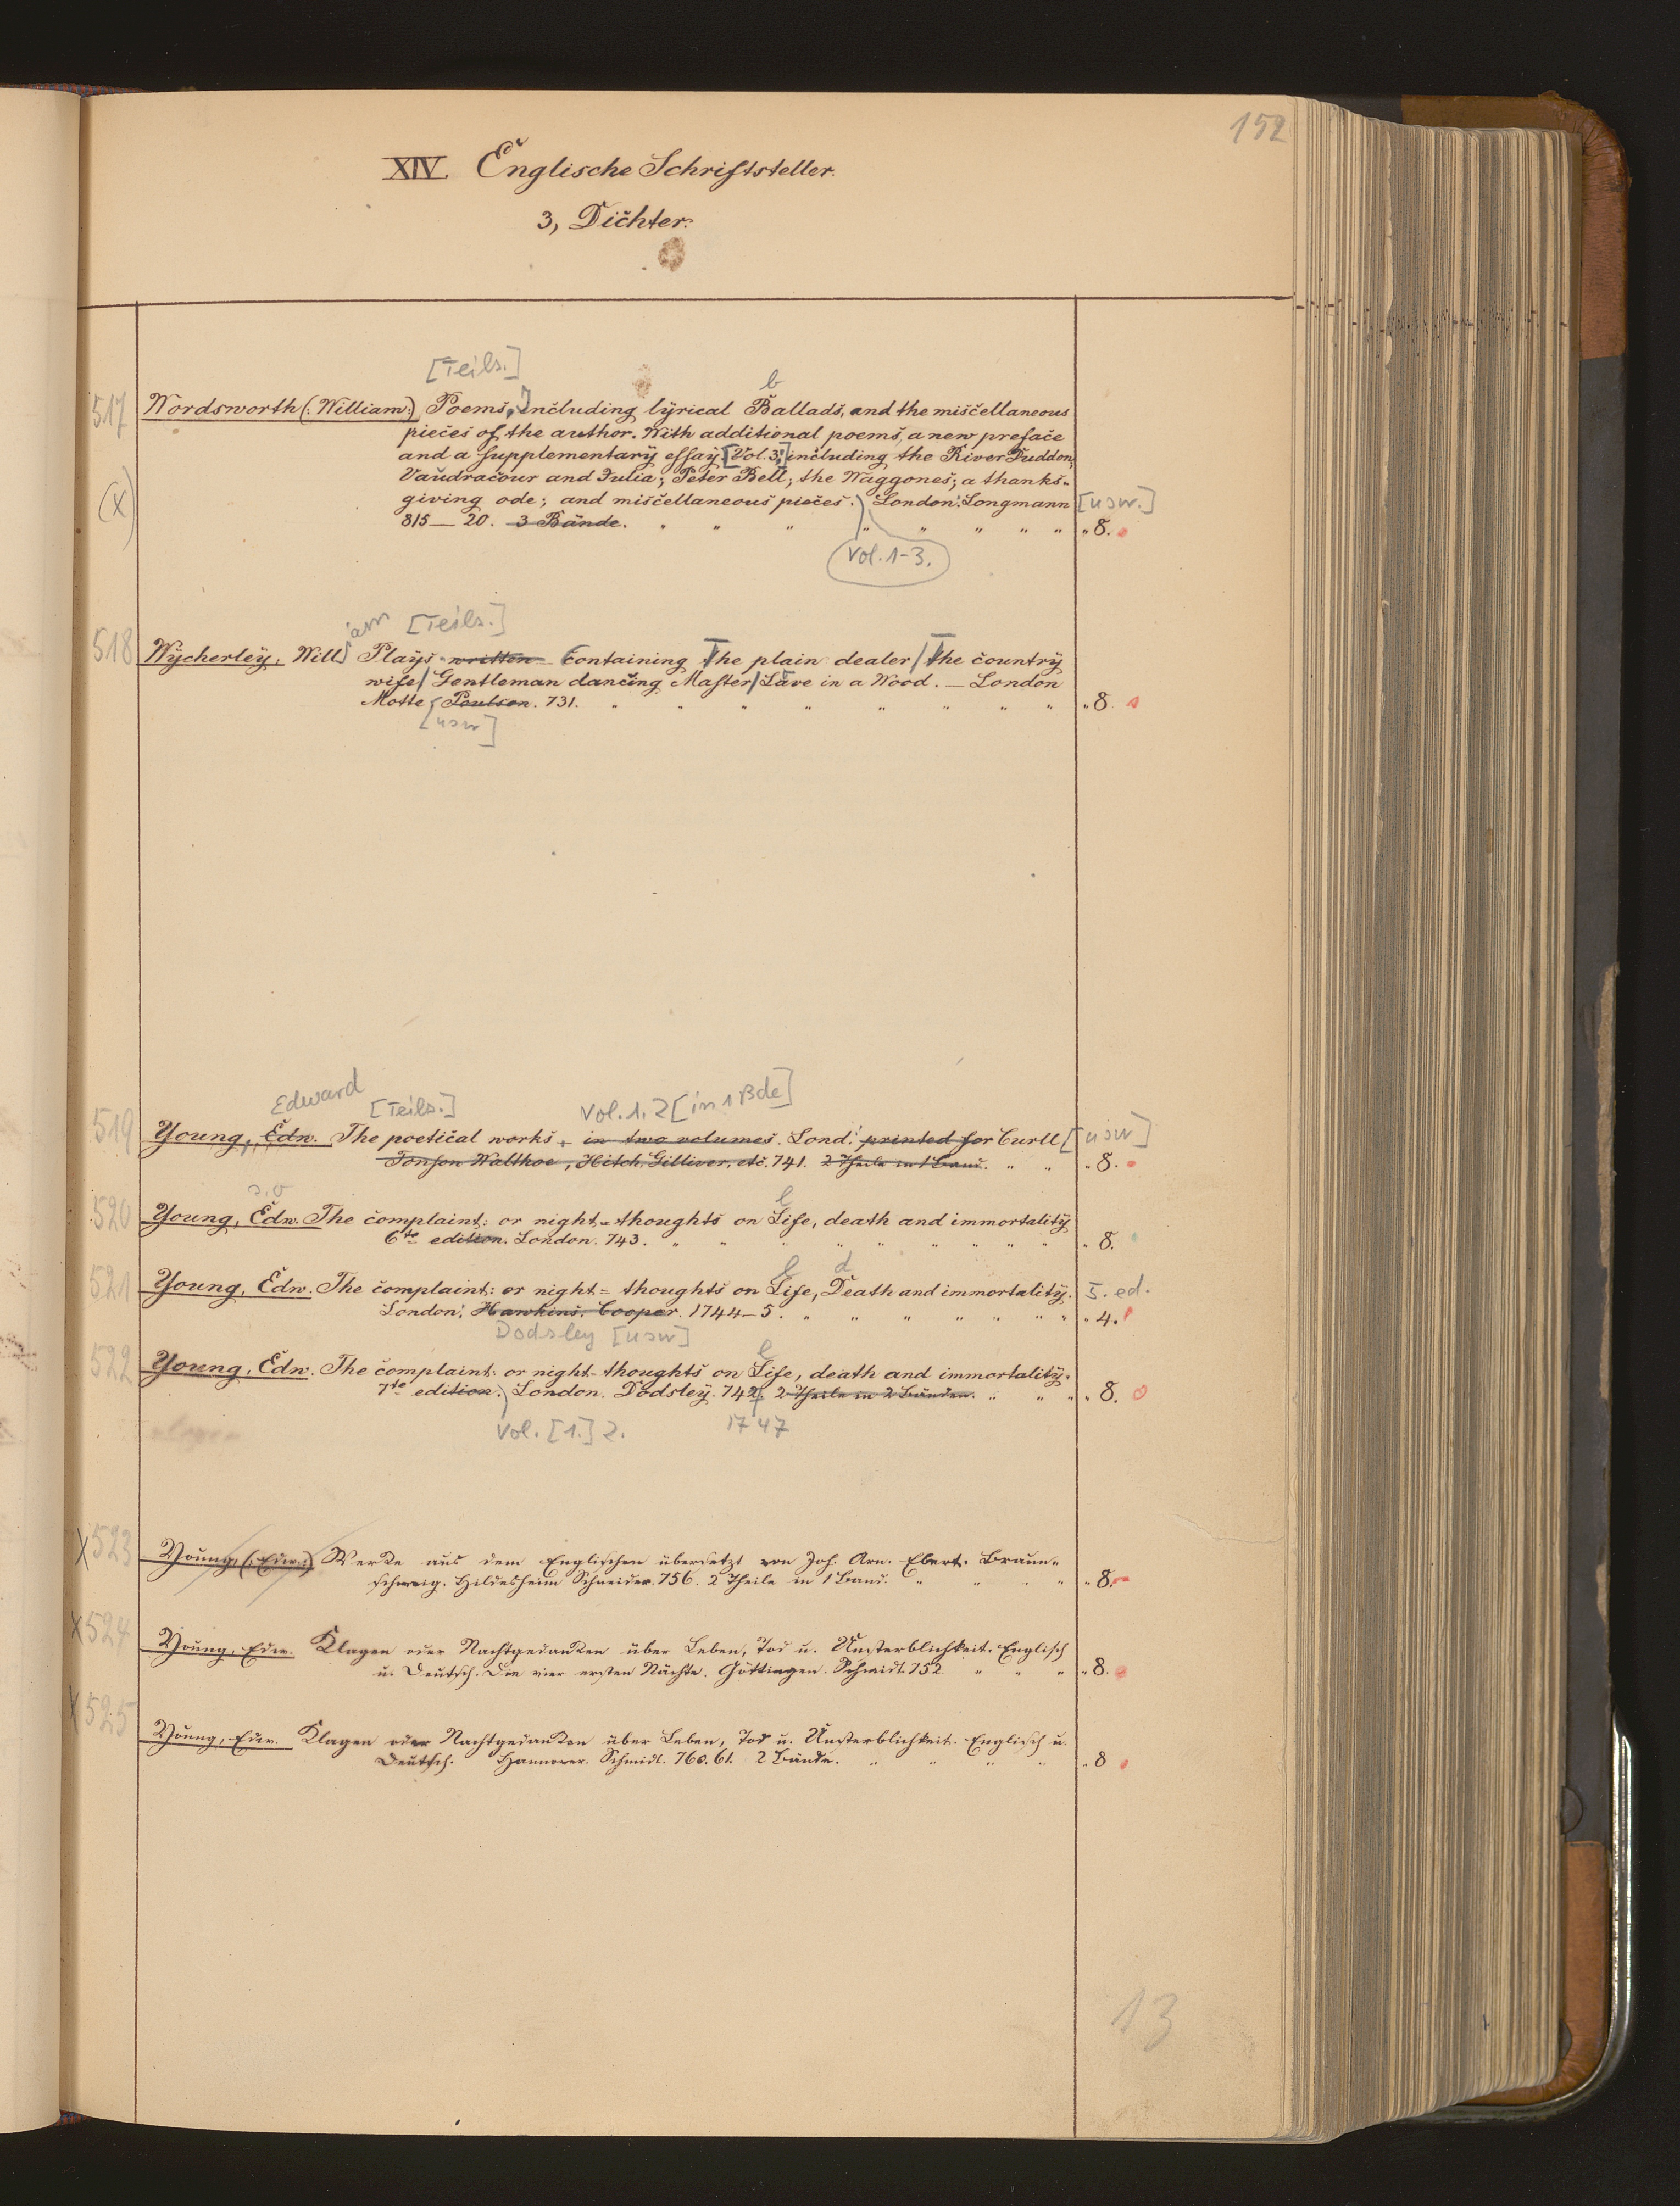 152
XIV. Englische Schriftsteller.
3, Dichter.
[Teils.]
b
517 Wordsworth (: William:) Poems, including lyrical Ballads, and the miscellaneous
pieces of the author. With additional poems, a new preface
and a supplementary essay. [Vol. 3,] including the River Duddon;
(X) Vaudracour and Julia; Peter Bell; the Waggones; a thanks-
giving ode; and miscellaneous pieces.) London: Longmann [usw.]
815—20. 3 Bände. " " " " " " " " " 8.
Vol. 1-3.
iam [Teils.]
518 Wycherley, Will Plays written – Containing The plain dealer/ The country
wife/ Gentleman dancing Master/ Love in a Wood. — London
Motte Poulson. 731. " " " " " " " " " 8.
[usw]
Edward [Teils.] Vol. 1. 2 [in 1 Bde]
519 Young, Edw. The poetical works, in two volumes. Lond: printed for Curll [usw]
Tonson Walthoe, Hitch, Gilliver, etc. 741. 2 Theile in 1 Band. " " " 8.
s. o l
520 Young, Edw. The complaint: or night-thoughts on Life, death and immortality
6te edition. London. 743. " " " " " " " " " 8.
l d
521 Young, Edw. The complaint: or night=thoughts on Life, Death and immortality. 5. ed.
London: Hawkins, Cooper. 1744—5. " " " " " " " " 4.
Dodsley [usw]
l
522 Young, Edw. The complaint: or night-thoughts on Life, death and immortality.
7te edition.) London. Dodsley. 742. 2 Theile in 2 Bänden. " " " " 8.
Vol. [1.] 2. 1747
X 523 Young, (: Edw:) Werke aus dem Englischen übersetzt von Joh. Arn. Ebert. Braun-
schweig. Hildesheim Schneider. 756. 2 Theile in 1 Band. " " " " " 8.
X 524 Young, Edw. Klagen oder Nachtgedanken über Leben, Tod u. Unsterblichkeit. Englisch
u. Deutsch. Die vier ersten Nächte. Göttingen. Schmidt. 752 " " " " 8.
X 525 Young, Edw. Klagen oder Nachtgedanken über Leben, Tod u. Unsterblichkeit. Englisch u.
Deutsch. Hannover. Schmidt. 760. 61. 2 Bände. " " " " " 8
13